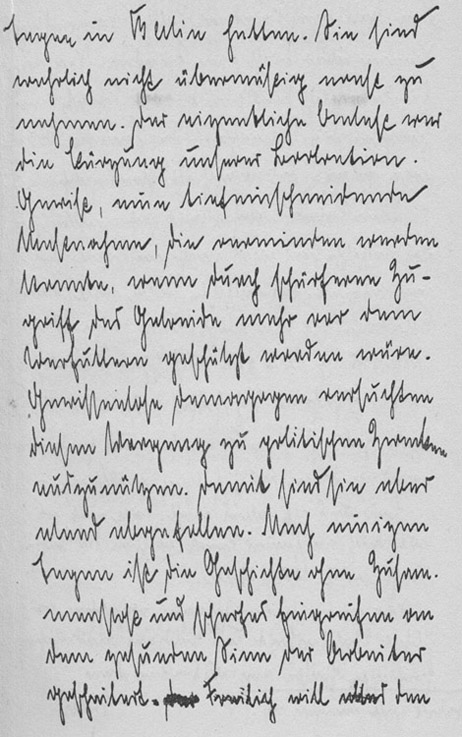 Tagen in Berlin hatten. Sie sind
wahrlich nicht übermäßig ernst zu
nehmen. Der eigentliche Anlass war
die Kürzung unserer Brotration.
Gewiss, eine tiefeinschneidende
Massnahme, die vermieden werden
konnte, wenn durch schärferen Zu-
griff das Getreide mehr vor dem
Verfüttern geschützt worden wäre.
Gewissenlose Demagogen versuchten
diesen Vorgang zu politischen Zwecken
auszunützen. Damit sind sie aber
elend abgefallen. Nach einigen
Tagen ist die Geschichte ohne Zusam-
menstöße und scharfes Eingreifen an
dem gesunden Sinn der Arbeiter
gescheitert. Freilich will den